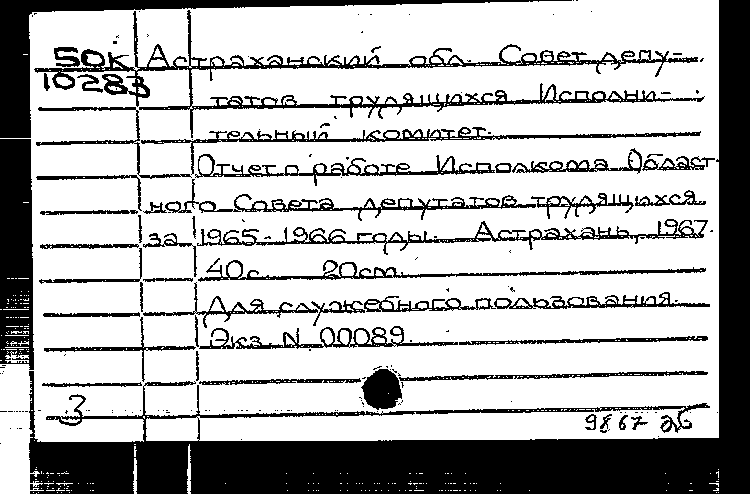 50к Астраханский обл. Совет депу-
10283 татов трудящихся Исполни-
тельный комитет.
Отчет о работе Исполкома Област-
ного Совета депутатов трудящихся
за 1965-1966 годы. Астрахань, 1967.
40с. 20см.
Для служебного пользования.
Экз. N 00089.
3
9867